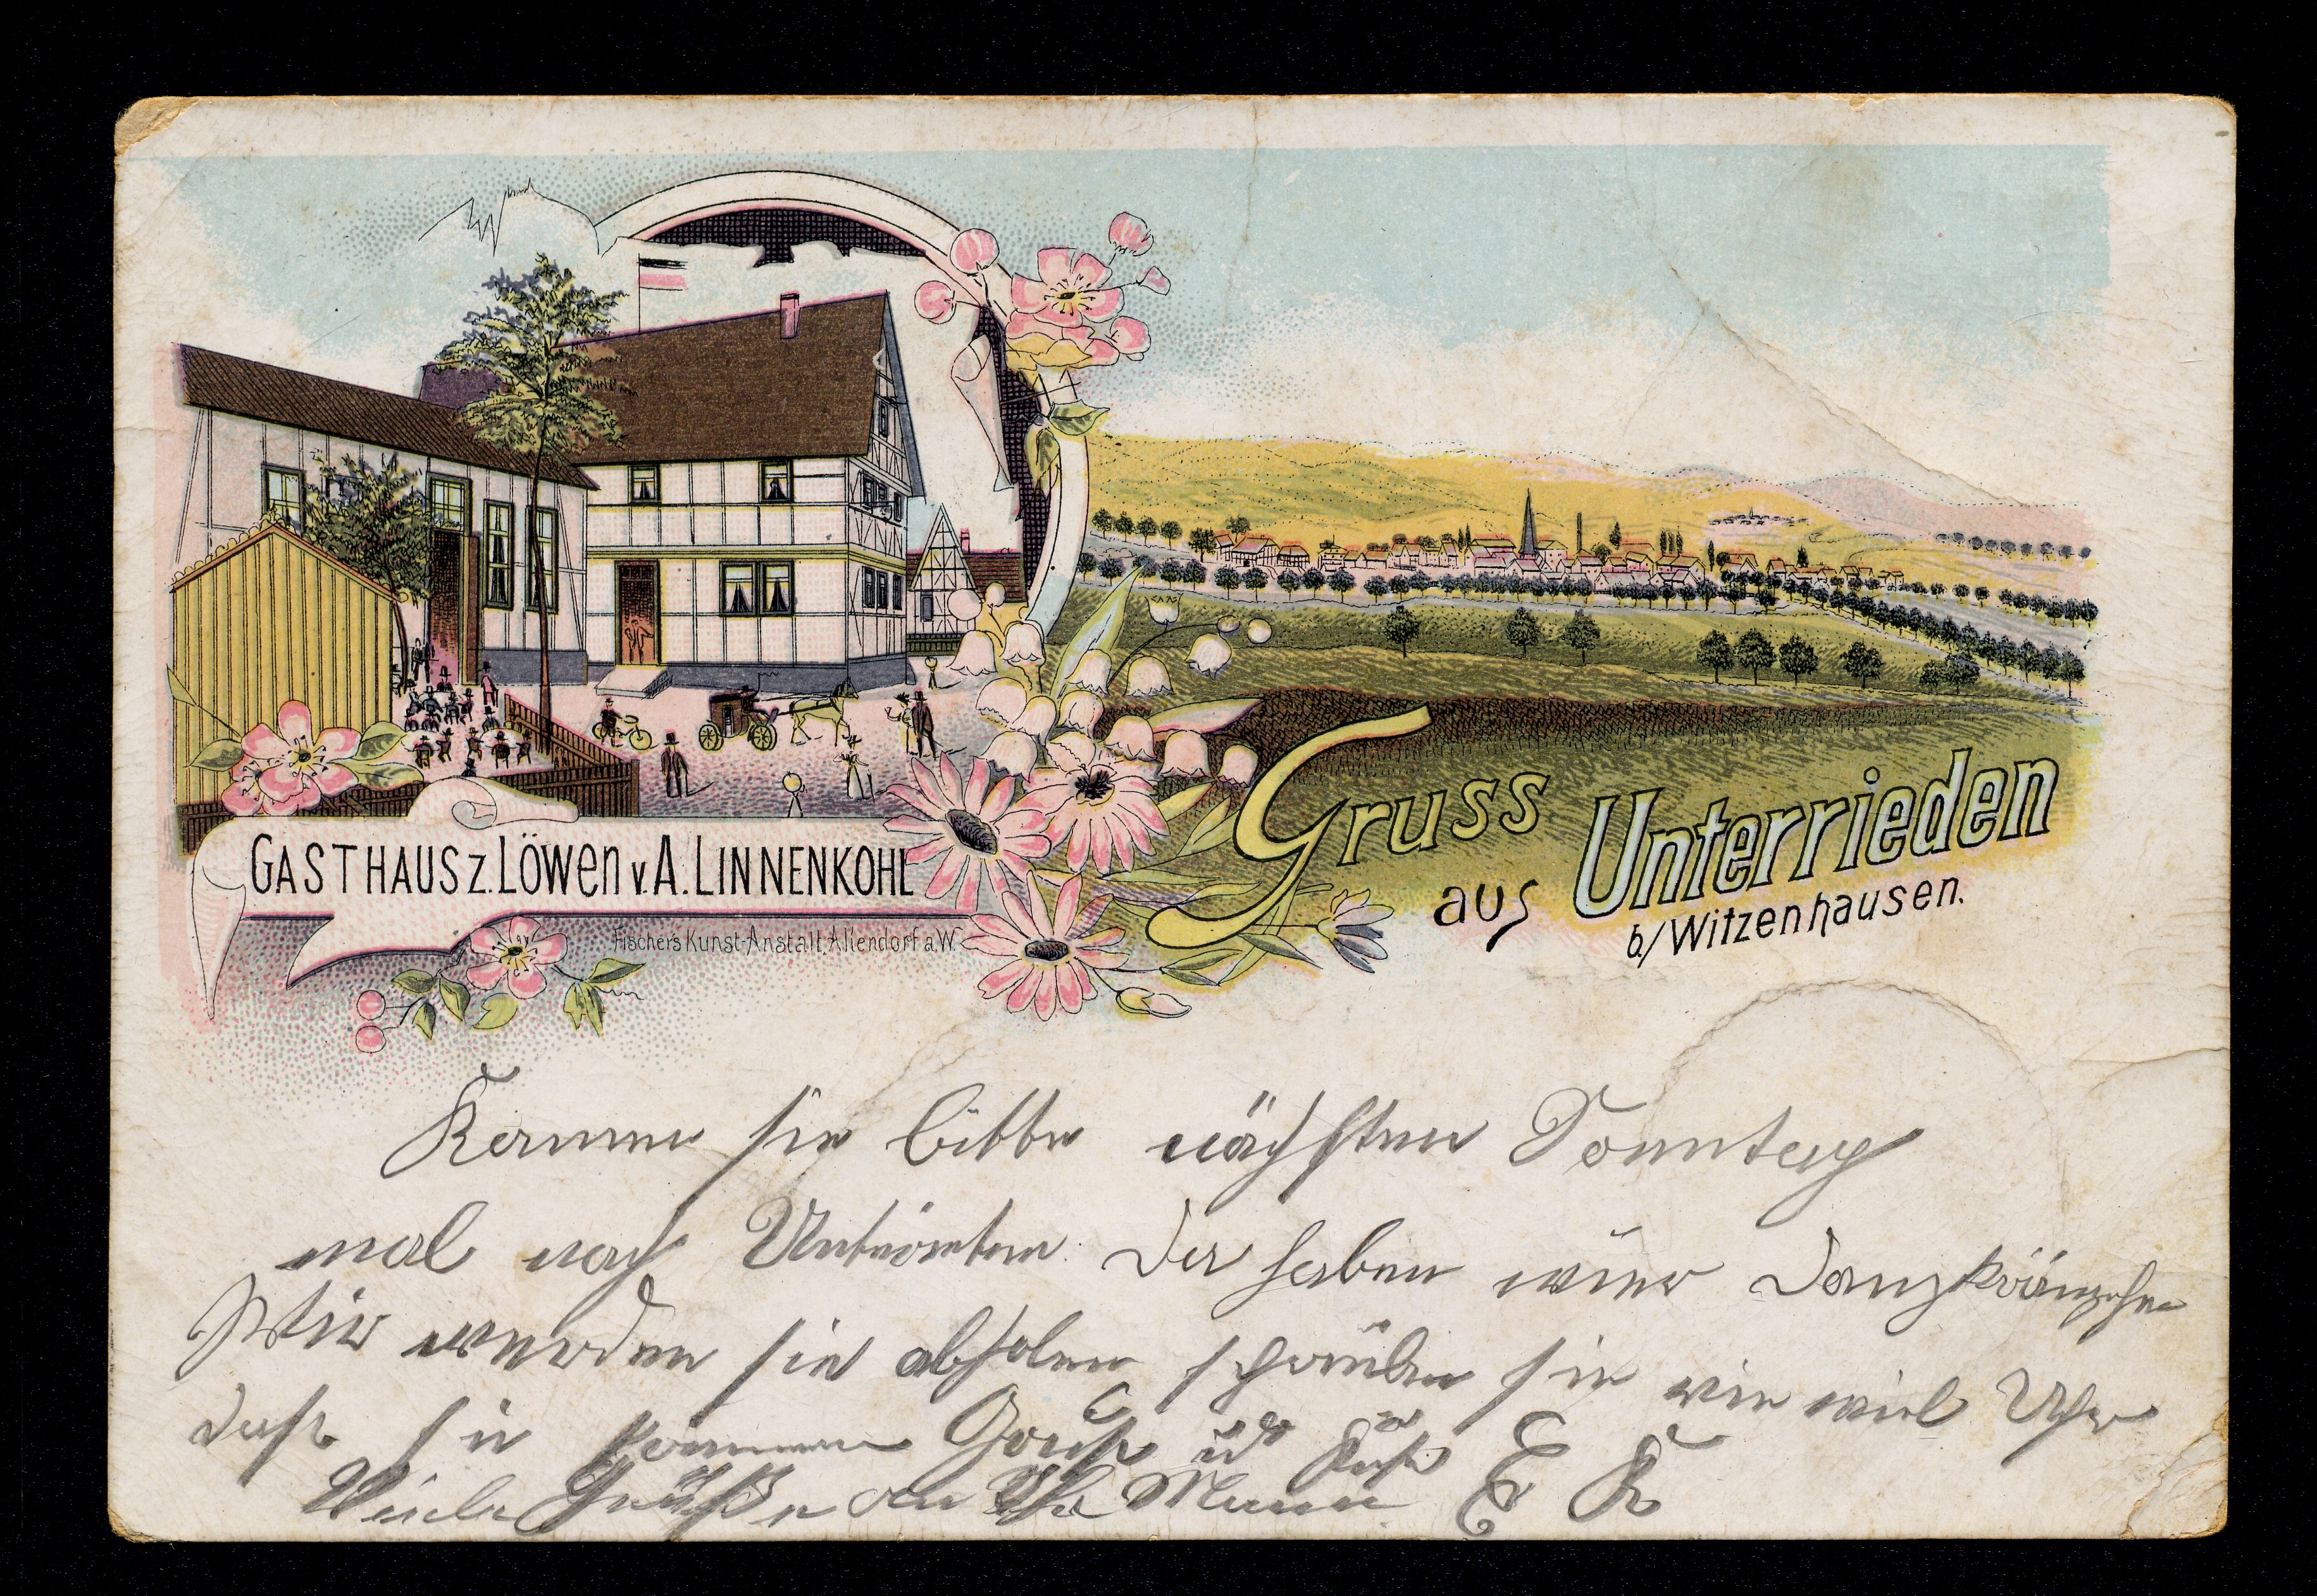 GASTHAUS Z. LÖWEN v. A. LINNENKOHL
Fischer's Kunst-Anstalt, Allendorf a. W.
Gruss
aus Unterrieden
b/Witzenhausen.
Kommen sie bitte nächsten Sonntag
mal nach haben Danzkränzchen
werden sie abholen schreiben sie wie viel Uhr
daß sie kommen Gruß u Kuß E K
Viele Grüße an Ihr Mann